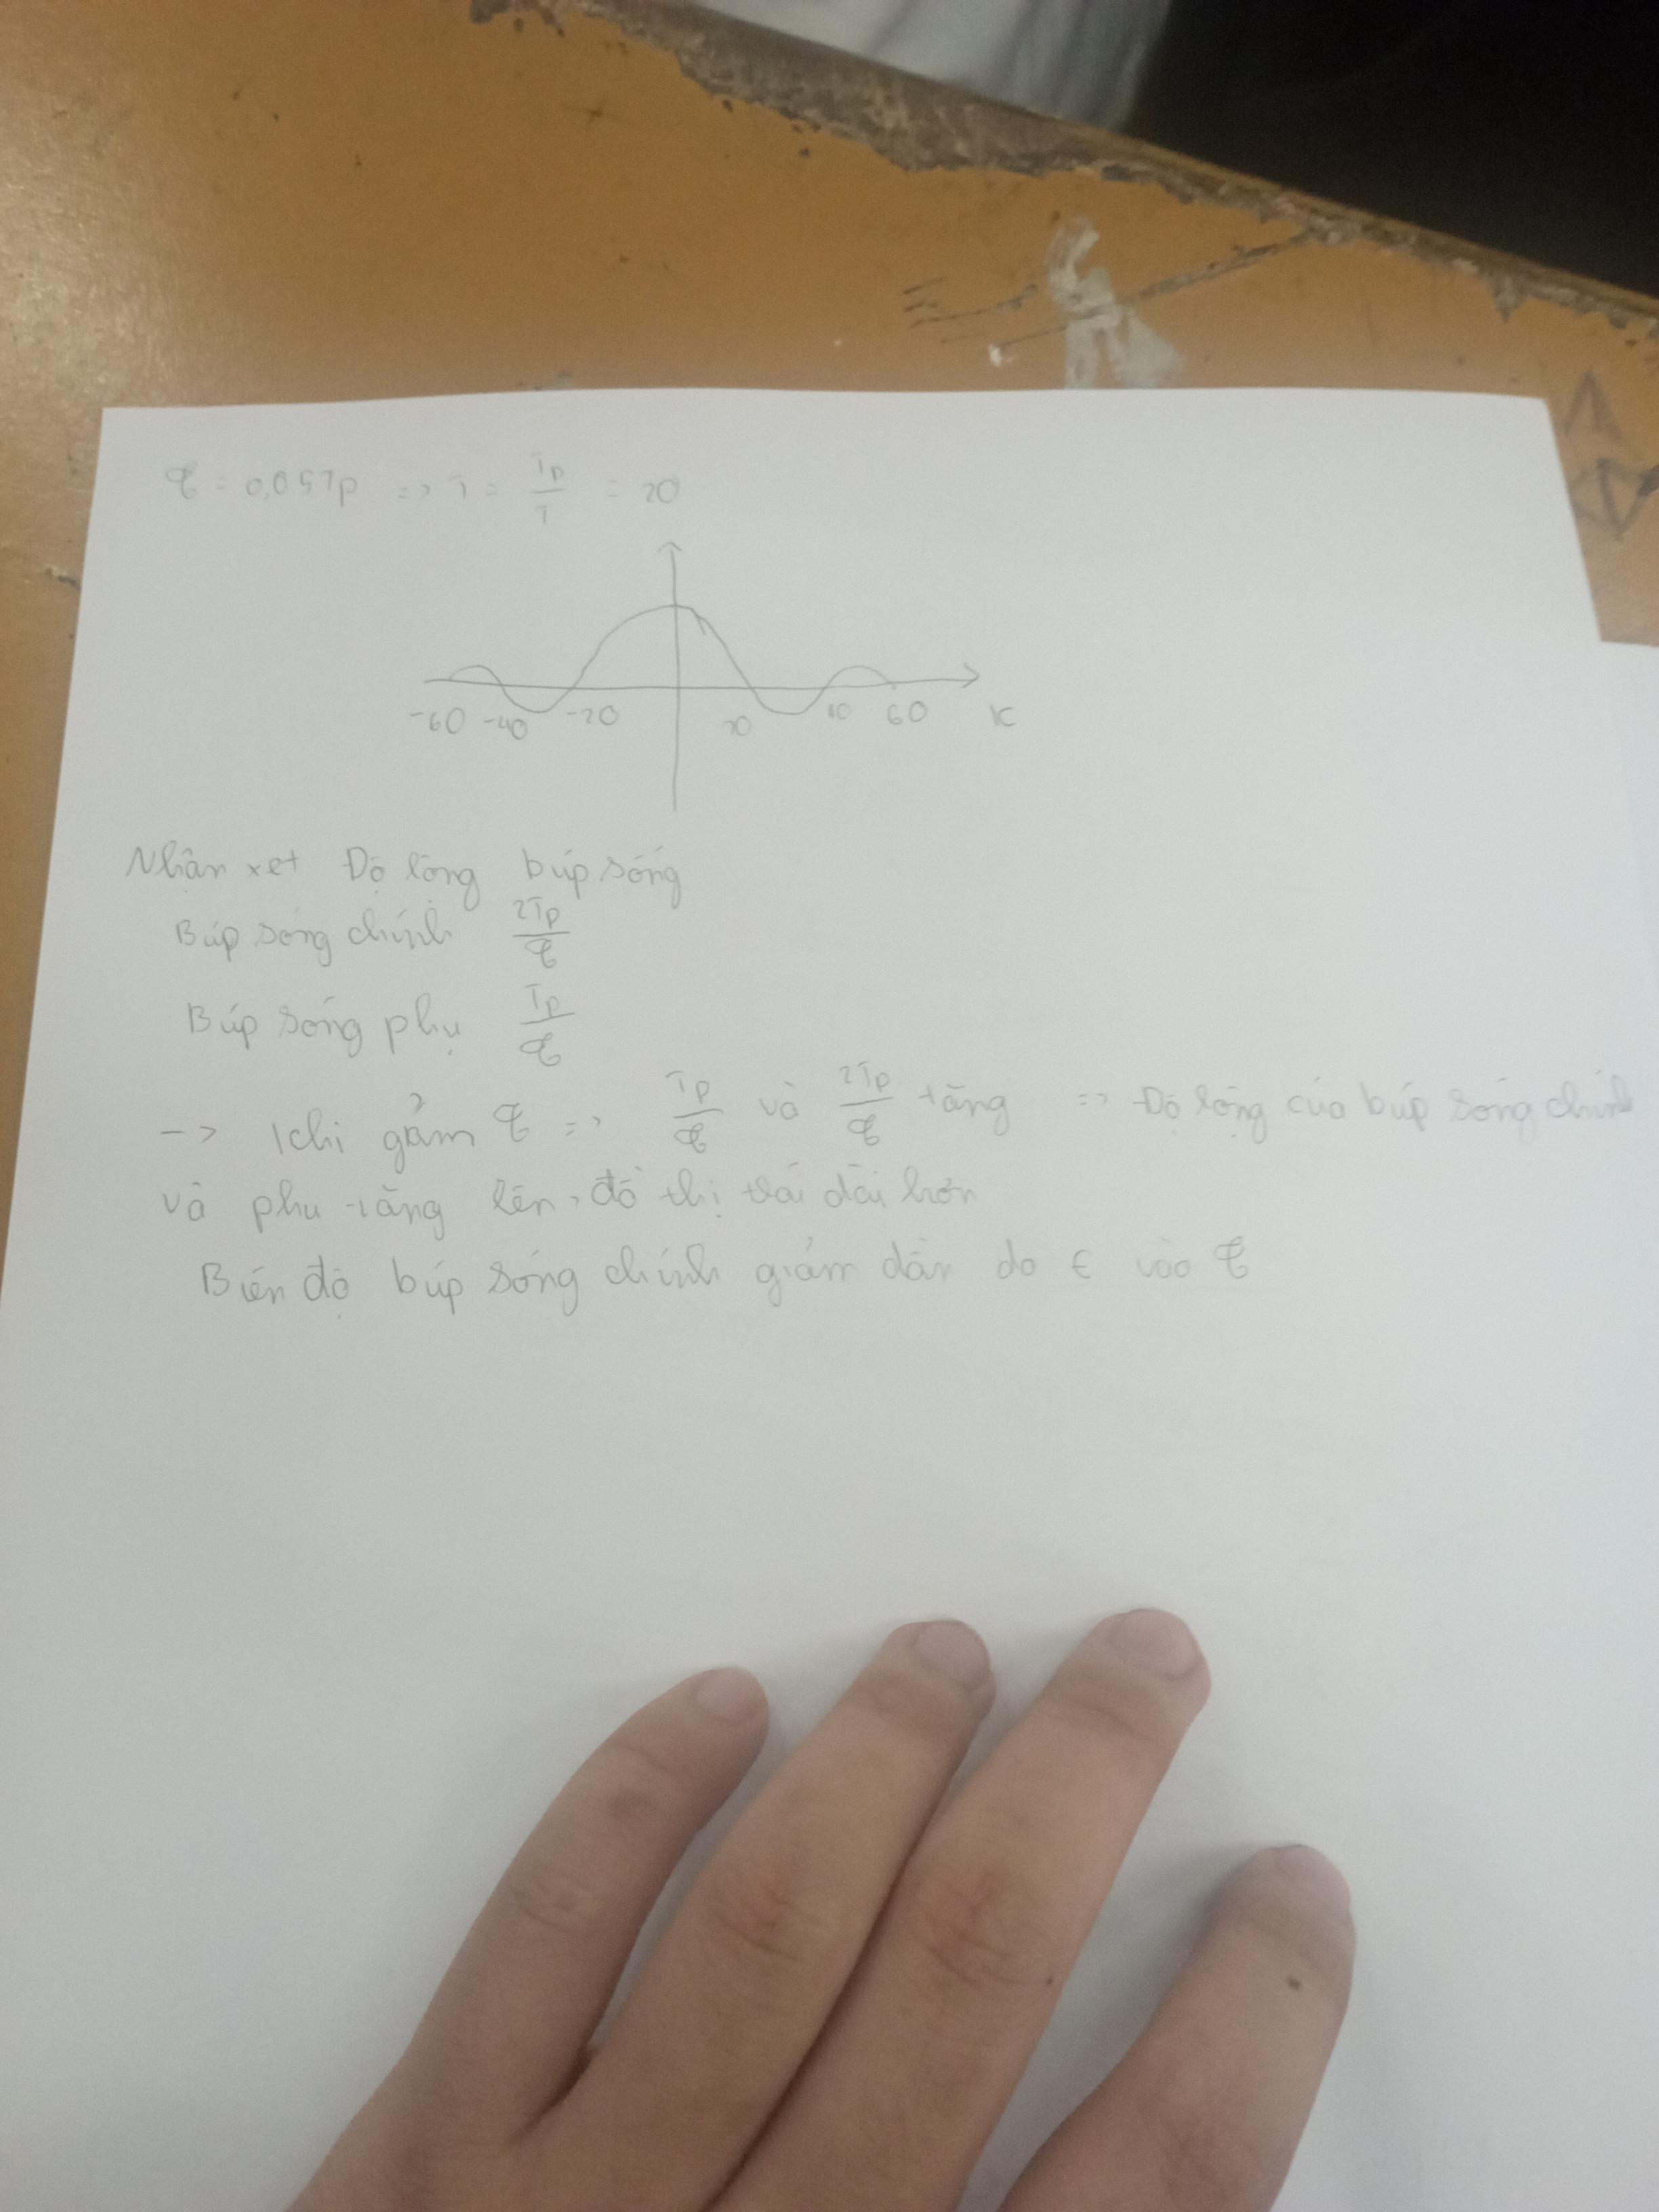 τ = 0,05Tp => T = Tp/T = 20
-60 -40 -20 20 40 60 K
Nhận xet Độ rộng búp sóng
Búp sóng chính 2Tp/τ
Búp sóng phụ Tp/τ
-> Khi giảm τ => Tp/τ và 2Tp/τ tăng => Độ rộng của búp sóng chính
và phu tăng lên, đồ thị trải dài hơn
Biên độ búp sóng chính giảm dần do ε vào τ